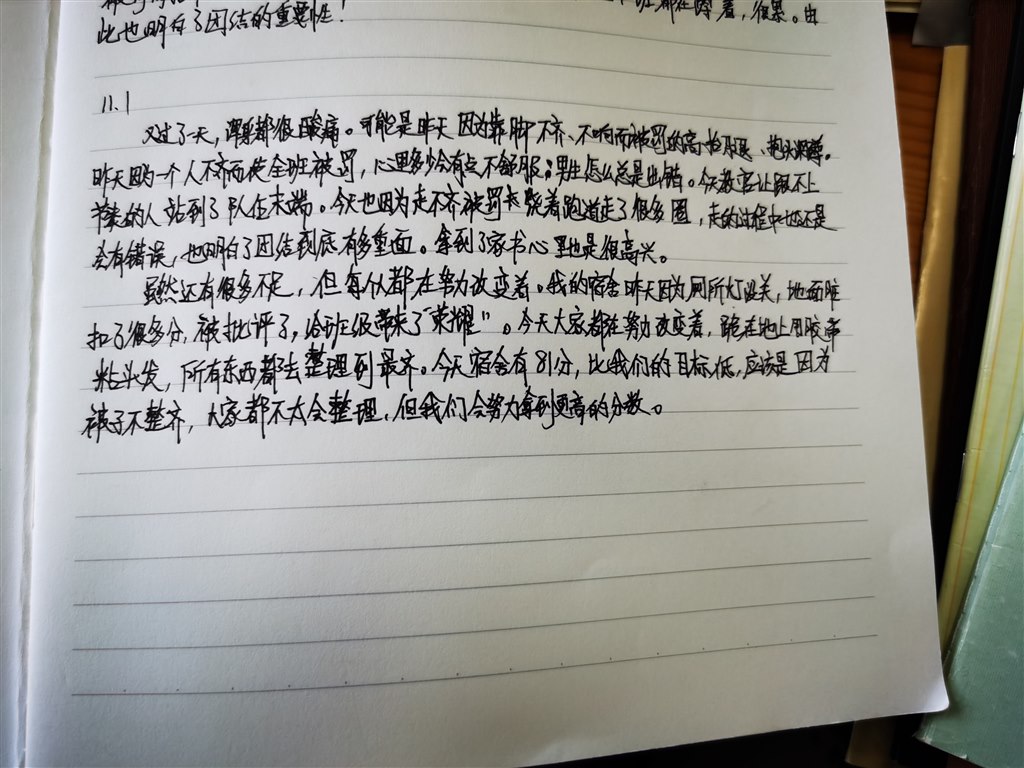 班都在蹲着,很累。由
此也明白了团结的重要性!
11.1
又过了一天,浑身都很酸痛。可能是昨天因为靠脚不齐、不响而被罚的高抬腿、抱头蹲。
昨天因为一个人不齐而使全班被罚,心里多少会有点不舒服;男生怎么总是出错。今天教官让跟不上
节奏的人站到了队伍末端。今天也因为走不齐被罚绕着跑道走了很多圈,走的过程中也还是
会有错误,也明白了团结到底有多重面。拿到了家书心里也是很高兴。
虽然还有很多不足,但每从都在努力改变着。我的宿舍昨天因为厕所灯没关,地面脏
扣了很多分,被批评了,给班级带来了“荣耀”。今天大家都在努力改变着,跪在地上用胶带
粘头发,所有东西都去整理到最齐。今天宿舍有81分,比我们的目标低,应该是因为
被子不整齐,大家都不太会整理,但我们会努力拿到更高的分数。